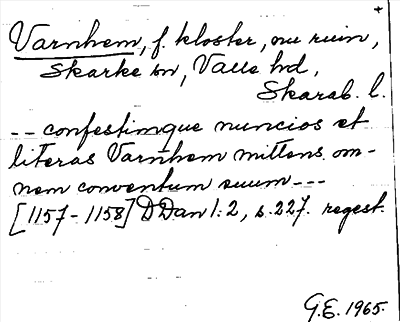 +
Varnhem, f. kloster, nu ruin,
Skarke sn, Valle hd,
Skarab. l.
-- confestimque nuncios et
literas Varnhem mittens om-
nem conventum suum ---
[1157-1158] DDan 1:2, s. 227. regest.
G.E. 1965.